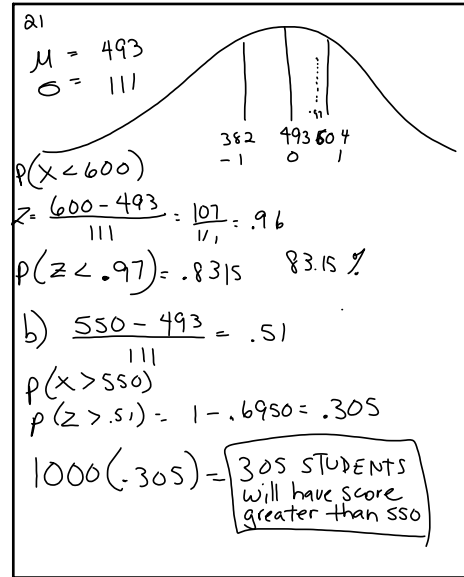 21
μ = 493
σ = 111
.97
382 493 604
-1 0 1
P(X<600)
Z= 600-493/111 = 107/111 = .96
P(Z<.97)= .8315 83.15%
b) 550-493/111 = .51
P(X>550)
P(Z>.51)= 1-.6950=.305
1000(.305)= 305 STUDENTS
will have score
greater than 550